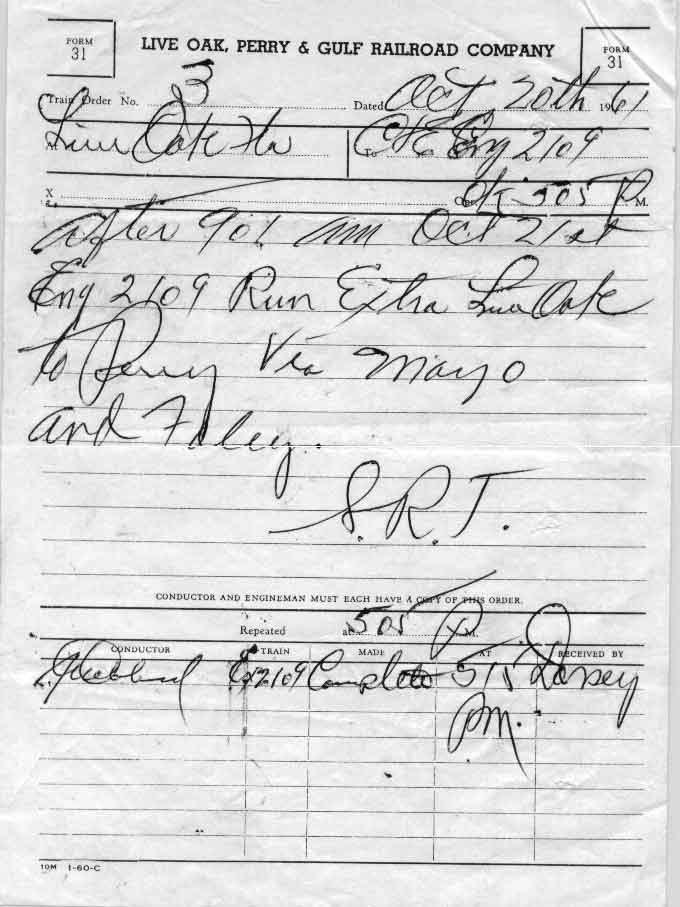 FORM 31 LIVE OAK, PERRY & GULF RAILROAD COMPANY FORM 31
Train Order No. 3 Dated Oct 20th 1961
At Live Oak Fla To C&E Eng 2109
X Opr. OK 505 P. M.
After 901 am Oct 21st
Eng 2109 Run Extra Live Oak
to Perry Via Mayo
and Foley.
S.R.T.
CONDUCTOR AND ENGINEMAN MUST EACH HAVE A COPY OF THIS ORDER.
Repeated at 505 P. M.
CONDUCTOR TRAIN MADE AT RECEIVED BY
Ex 2109 Complete 515 Dorsey
PM.
10M 1-60-C